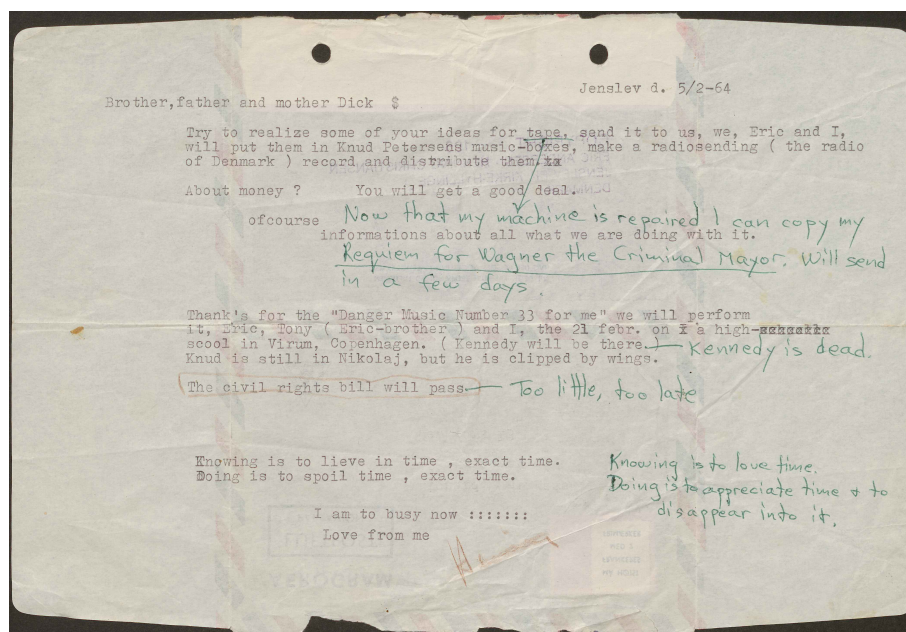 Jenslev d. 5/2-64
Brother,father and mother Dick $
Try to realize some of your ideas for tape, send it to us, we, Eric and I,
will put them in Knud Petersens music-boxes, make a radiosending ( the radio
of Denmark ) record and distribute them.
About money ? You will get a good deal.
ofcourse Now that my machine is repaired I can copy my
informations about all what we are doing with it.
Requiem for Wagner the Criminal Mayor. Will send
in a few days.
Thank's for the "Danger Music Number 33 for me" we will perform
it, Eric, Tony ( Eric-brother ) and I, the 21 febr. on a high-
scool in Virum, Copenhagen. ( Kennedy will be there.) Kennedy is dead.
Knud is still in Nikolaj, but he is clipped by wings.
The civil rights bill will pass. Too little, too late
Knowing is to lieve in time , exact time. Knowing is to love time.
Doing is to spoil time , exact time. Doing is to appreciate time & to
disappear into it.
I am to busy now :::::::
Love from me